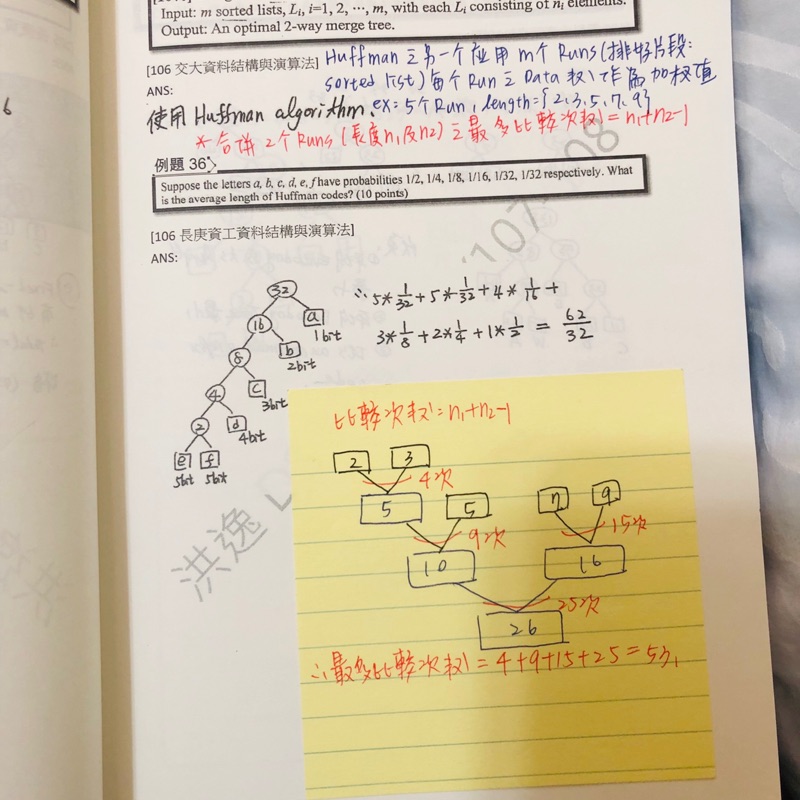 Input: m sorted lists, Li, i=1, 2, ⋯, m, with each Li consisting of ni elements.
Output: An optimal 2-way merge tree.
[106 交大資料結構與演算法]
Huffman 之另一个应用 m个 Runs (排好片段:
sorted list) 每个 Run 之 Data 數, 作為加权值
ANS:
使用 Huffman algorithm.
ex: 5个Run, length={2,3,5,7,9}
* 合併 2个 Runs (長度n1及n2) 之最多比較次數 = n1+n2-1
例題 36
Suppose the letters a, b, c, d, e, f have probabilities 1/2, 1/4, 1/8, 1/16, 1/32, 1/32 respectively. What
is the average length of Huffman codes? (10 points)
[106 長庚資工資料結構與演算法]
ANS:
32
16
a
1bit
8
b
2bit
4
c
3bit
2
d
4bit
e
f
5bit
5bit
∴ 5*1/32+5*1/32+4*1/16+
3*1/8+2*1/4+1*1/2 = 62/32
比較次數=n1+n2-1
2
3
4次
5
5
7
9
9次
15次
10
16
25次
26
∴ 最多比較次數 = 4+9+15+25 = 53
洪逸
107
08
6